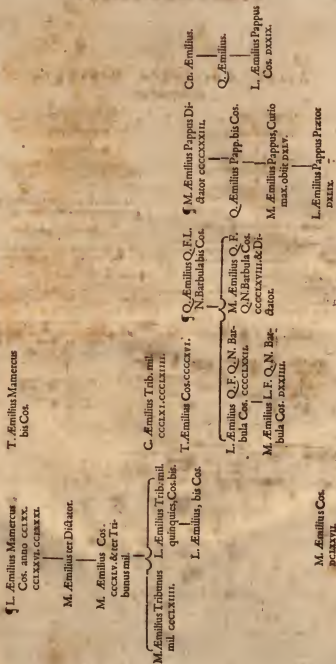 ¶ L. Æmilius Mamercus
Cos. anno CCLXX.
CCLXXVI. CCLXXXI.
M. Æmilius ter Dictator.
M. Æmilius Cos.
CCCXLV. & ter Tri-
bunus mil.
M. Æmilius Tribunus
mil. CCCLXIIII.
L. Æmilius Trib. mil.
quinquies, Cos. bis.
L. Æmilius, bis Cos.
M. Æmilius Cos.
DCLXXVII.
T. Æmilius Mamercus
bis Cos.
C. Æmilius Trib. mil.
CCCLXI. CCCLXIIII.
T. Æmilius Cos. CCCCXVI.
¶ Q. Æmilius Q. F. L.
N. Barbula bis Cos.
L. Æmilius Q. F. Q. N. Bar-
bula Cos. CCCCLXXII.
M. Æmilius L. F. Q. N. Bar-
bula Cos. DXXIIII.
M. Æmilius Q. F.
Q. N. Barbula Cos.
CCCCLXVIII. & Di-
ctator.
¶ M. Æmilius Pappus Di-
ctator CCCCXXXIII.
Q. Æmilius Papp. bis Cos.
M. Æmilius Pappus, Curio
max. obiit DXLV.
L. Æmilius Pappus Prætor
DXLIX.
Cn. Æmilius.
Q. Æmilius.
L. Æmilius Pappus
Cos. DXXIX.